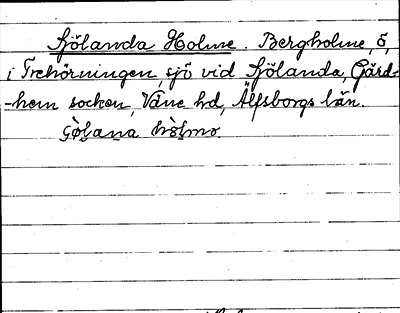 Sjölanda Holme. Bergholme, ö,
i Trehörningen, sjö vid Sjölanda, Gärd-
-hem socken, Väne hd, Älfsborgs län.